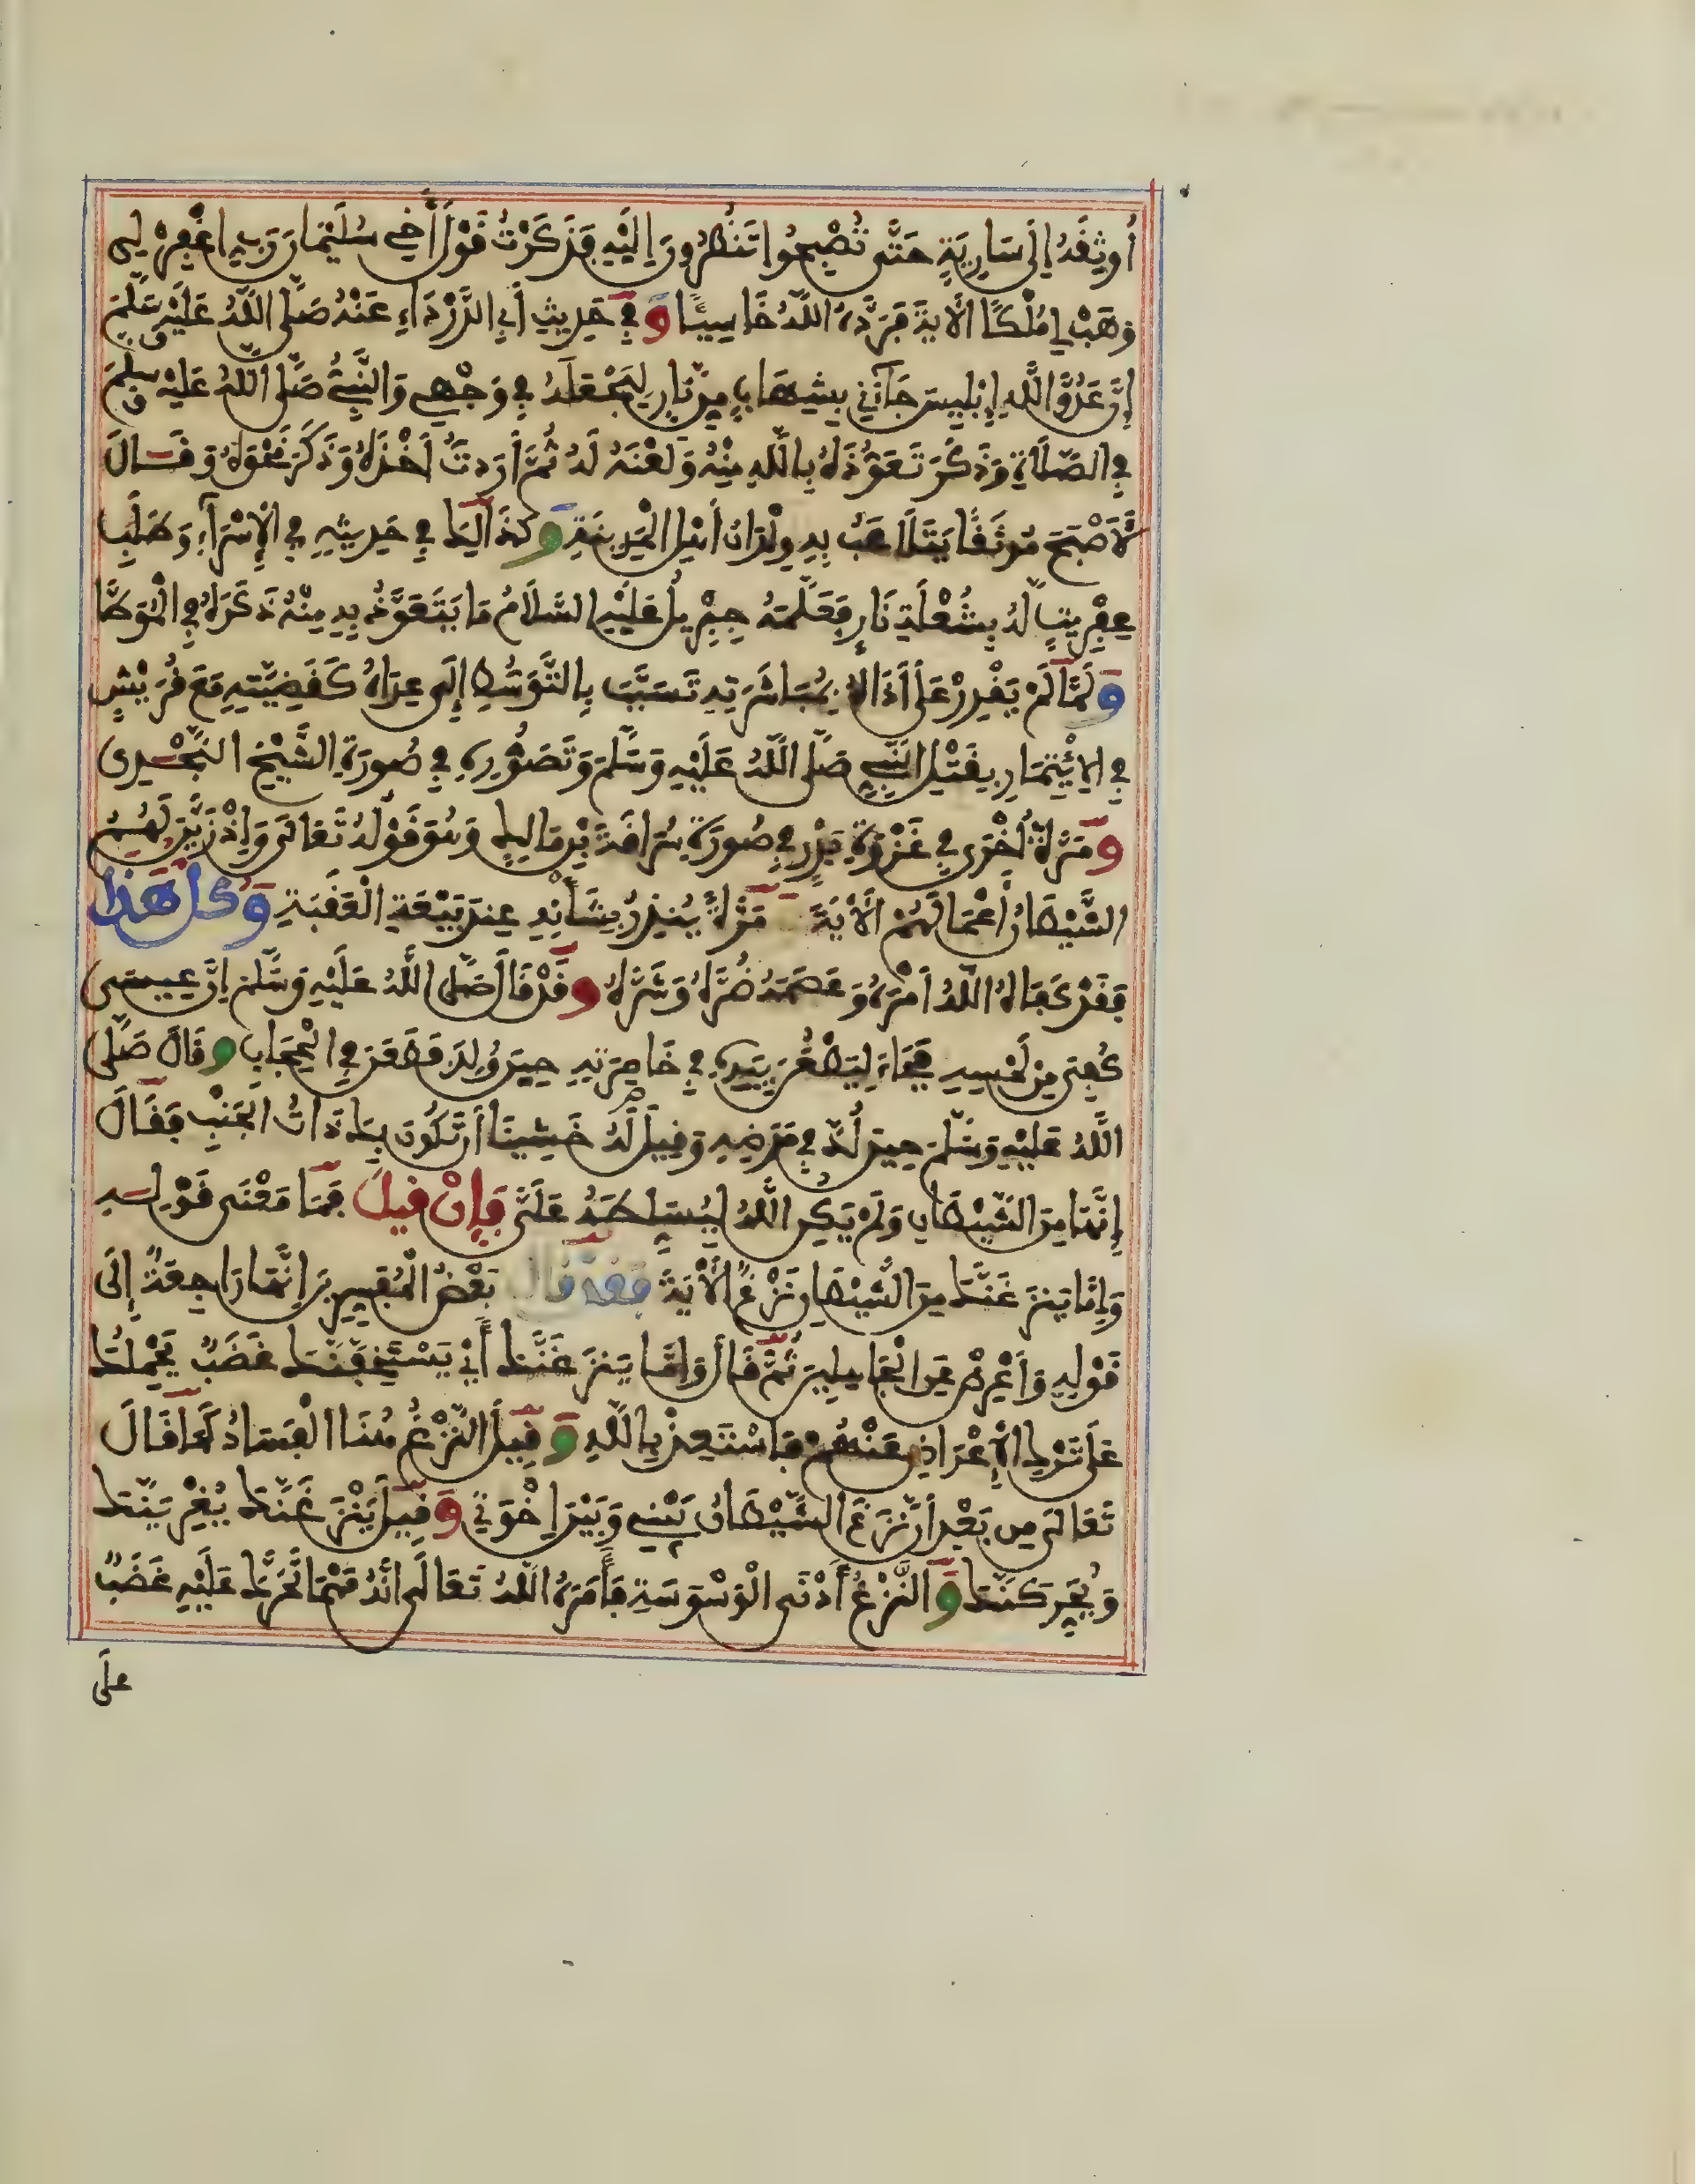 أُوثِقَهُ إِلَى سَارِيَةٍ حَتَّى تُصْبِحُوا تَنْظُرُونَ إِلَيْهِ فَذَكَرْتُ قَوْلَ أَخِي سُلَيْمَانَ رَبِّ اغْفِرْ لِي
وَهَبْ لِي مُلْكًا الْآيَةَ فَرَدَّهُ اللَّهُ خَاسِئًا وَفِي حَدِيثِ أَبِي الدَّرْدَاءِ عَنْهُ صَلَّى اللَّهُ عَلَيْهِ وَسَلَّمَ
إِنَّ عَدُوَّ اللَّهِ إِبْلِيسَ جَآءَنِي بِشِهَابٍ مِنْ نَارٍ لِيَجْعَلَهُ فِي وَجْهِي وَالنَّبِيُّ صَلَّى اللَّهُ عَلَيْهِ وَسَلَّمَ
فِي الصَّلَاةِ وَذَكَرَ تَعَوُّذَهُ بِاللَّهِ مِنْهُ وَلَعْنَهُ لَهُ ثُمَّ أَرَدتُّ أَخْذَهُ وَذَكَرَ نَحْوَهُ وَقَالَ
لَأَصْبَحَ مُوثَقًا يَتَلَاعَبُ بِهِ وِلْدَانُ أَهْلِ الْمَدِينَةِ وَكَذَالِكَ فِي حَدِيثِهِ فِي الْإِسْرَآءِ وَطَلَبِ
عِفْرِيتٍ لَهُ بِشُعْلَةِ نَارٍ فَعَلَّمَهُ جِبْرِيلُ عَلَيْهِ السَّلَامُ مَا يَتَعَوَّذُ بِهِ مِنْهُ ذَكَرَهُ فِي الْمُوَطَّا
وَلَمَّا لَمْ يَقْدِرْ عَلَى أَذَاهُ بِمُبَاشَرَتِهِ تَسَبَّبَ بِالتَّوَسُّطِ إِلَى عِدَاهُ كَقَضِيَّتِهِ مَعَ قُرَيْشٍ
فِي الِائْتِمَارِ بِقَتْلِ النَّبِيِّ صَلَّى اللَّهُ عَلَيْهِ وَسَلَّمَ وَتَصَوُّرِهِ فِي صُورَةِ الشَّيْخِ النَّجْدِي
وَمَرَّةً أُخْرَى فِي غَزْوَةِ بَدْرٍ فِي صُورَةِ سُرَاقَةَ بْنِ مَالِكٍ وَهُوَ قَوْلُهُ تَعَالَى وَإِذْ زَيَّنَ لَهُمُ
الشَّيْطَانُ أَعْمَالَهُمْ الْآيَةَ مَرَّةً يُنْذِرُ بِشَأْنِهِ عِندَ بَيْعَةِ الْعَقَبَةِ وَكُلُّ هَذَا
فَقَدْ كَفَاهُ اللَّهُ أَمْرَهُ وَعَصَمَهُ ضُرَّهُ وَشَرَّهُ وَقَدْ قَالَ صَلَّى اللَّهُ عَلَيْهِ وَسَلَّمَ إِنَّ عِيسَى
كُفِيَ مِنْ لَمْسِهِ فَجَاءَ لِيَطْعُنَ بِيَدِهِ فِي خَاصِرَتِهِ حِينَ وُلِدَ فَطَعَنَ فِي الْحِجَابِ وَقَالَ صَلَّى
اللَّهُ عَلَيْهِ وَسَلَّمَ حِينَ لُدَّ فِي مَرَضِهِ وَقِيلَ لَهُ خَشِينَا أَنْ تَكُونَ بِكَ ذَاتُ الْجَنْبِ فَقَالَ
إِنَّهَا مِنَ الشَّيْطَانِ وَلَمْ يَكُنِ اللَّهُ لِيُسَلِّطَهُ عَلَيَّ فَإِنْ قِيلَ فَمَا مَعْنَى قَوْلِهِ
وَإِمَّا يَنزَغَنَّكَ مِنَ الشَّيْطَانِ نَزْغٌ الْآيَةَ فَقَدْ قَالَ بَعْضُ الْمُفَسِّرِينَ إِنَّهَا رَاجِعَةٌ إِلَى
قَوْلِهِ وَأَعْرِضْ عَنِ الْجَاهِلِينَ ثُمَّ قَالَ وَإِمَّا يَنزَغَنَّكَ أَيْ يَسْتَخِفَّنَّكَ غَضَبٌ يَحْمِلُكَ
عَلَى تَرْكِ الْإِعْرَاضِ عَنْهُمْ فَاسْتَعِذْ بِاللَّهِ وَقِيلَ النَّزْغُ هُنَا الْفَسَادُ كَمَا قَالَ
تَعَالَى مِن بَعْدِ أَن نَّزَغَ الشَّيْطَانُ بَيْنِي وَبَيْنَ إِخْوَتِي وَقِيلَ يَنْزَغَنَّكَ يُغْرِيَنَّكَ
وَيُحَرِّكَنَّكَ وَالنَّزْغُ أَدْنَى الْوَسْوَسَةِ فَأَمَرَهُ اللَّهُ تَعَالَى أَنَّهُ مَهْمَا تَحَرَّكَ عَلَيْهِ غَضَبٌ
علَى